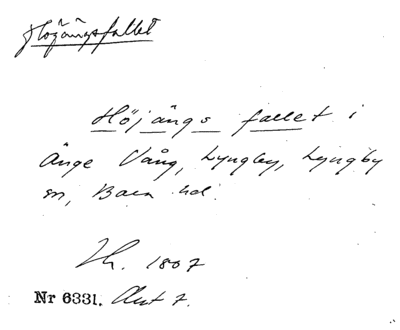 Höjängsfallet
Höjängs fallet i
Änge Vång, Lyngby, Lyngby
sn, Bara hd.
Th. 1807
Nr 6331. Akt 7.